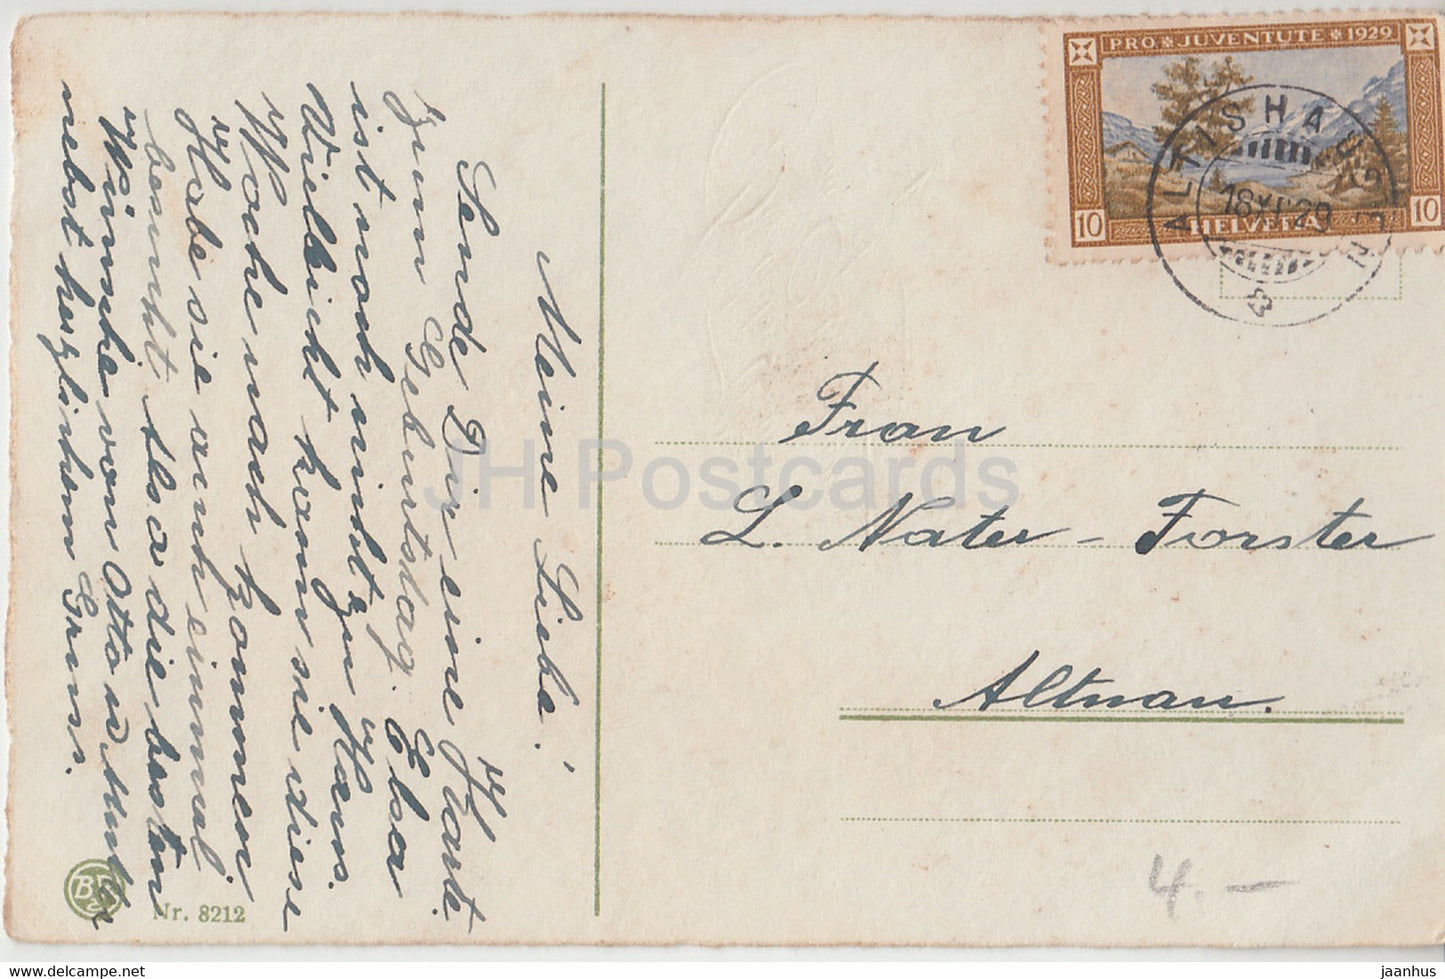 Meine Liebe!
Sende Dir eine Karte
zum Geburtstag. Elsa
ist noch nicht zu Haus.
Vielleicht kann sie diese
Woche nach kommen
Habe sie auch einmal
besucht. Also die besten
Wünsche von Otto u. Mutter
nebst herzlichem Gruss.
PRO JUVENTUTE 1929
10 HELVETIA 10
ALTISHAUSEN
18.XII.29
Frau
L. Nater-Forster
Altnau.
4.—
BR
Nr. 8212
JH Postcards
jaanhus / postcards-delcampe.net